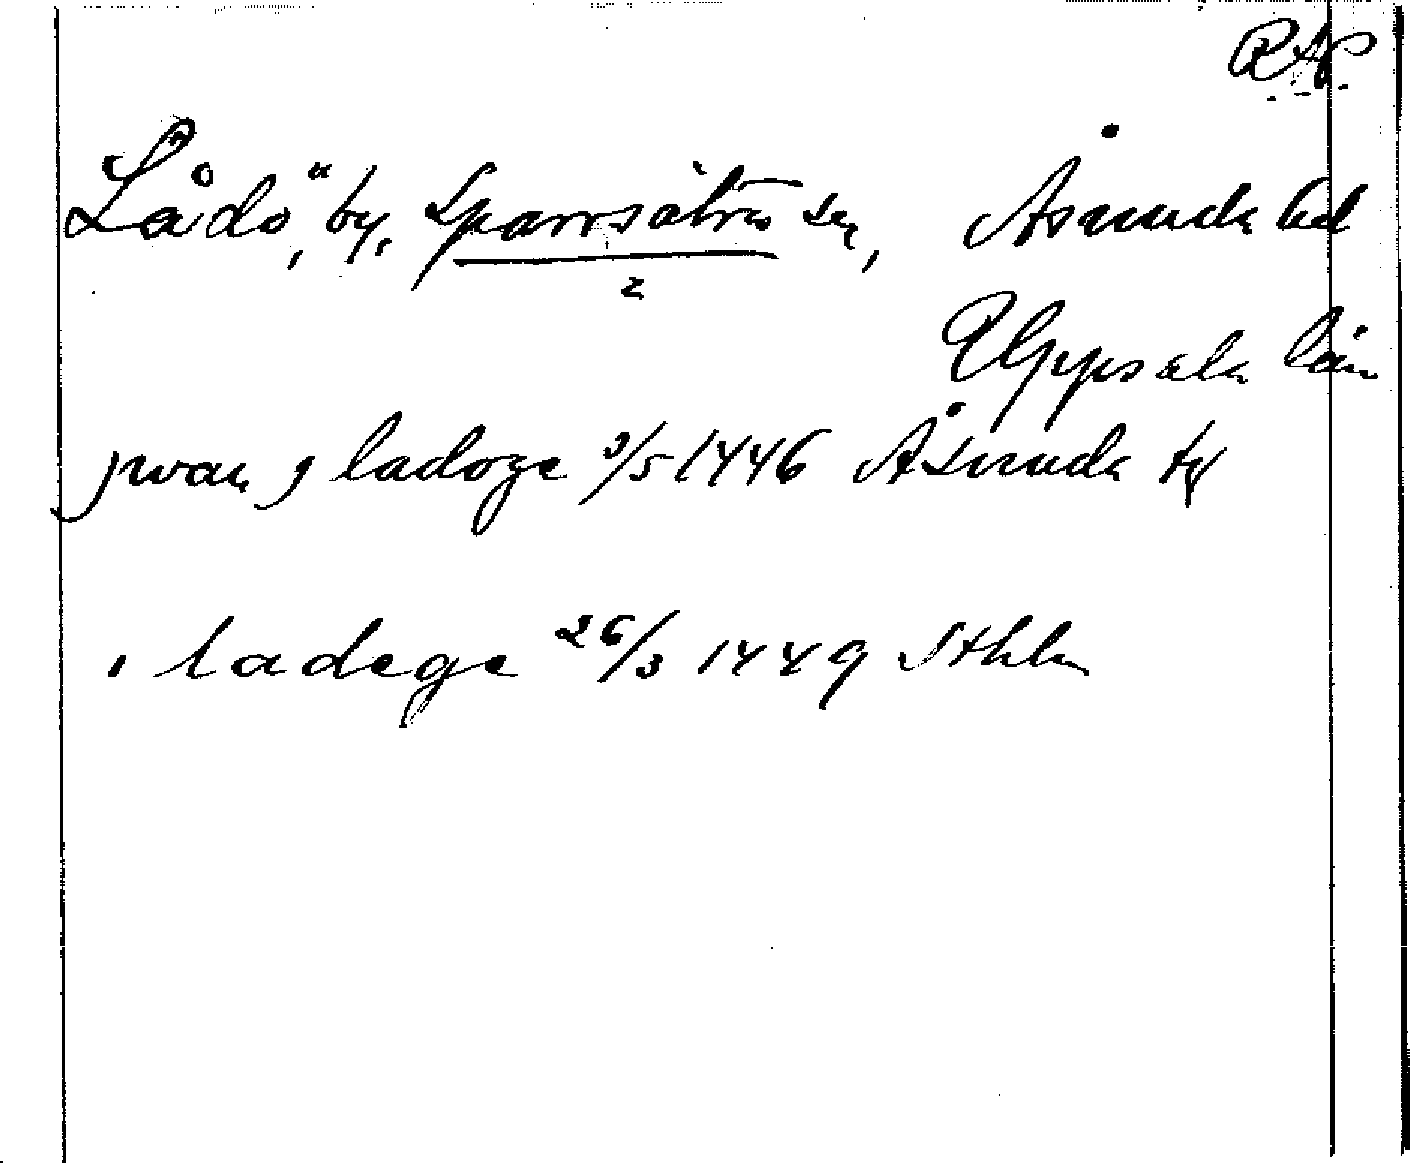 RAP
Lådö, by, Sparrsätra sn, Åsunda hd
2
Uppsala län
jwan j ladoge 3/5 1446 Åsunda tg
i ladege 26/3 1449 Sthlm